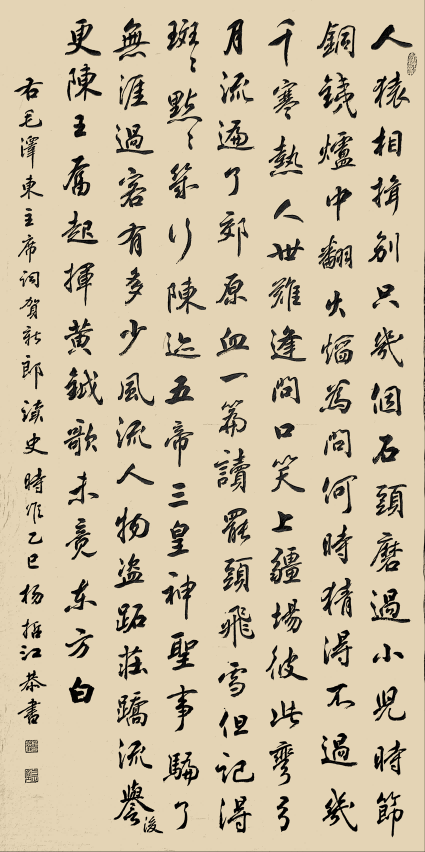 人猿相揖別只幾個石頭磨過小兒時節
銅鐵爐中翻火焰為問何時猜得不過幾
千寒熱人世難逢開口笑上疆場彼此彎弓
月流遍了郊原血一篇讀罷頭飛雪但記得
斑〻點〻幾行陳迹五帝三皇神聖事騙了
無涯過客有多少風流人物盜跖莊蹻流譽後
更陳王奮起揮黃鉞歌未竟東方白
右毛澤東主席詞賀新郎讀史時維乙巳杨哲江恭書